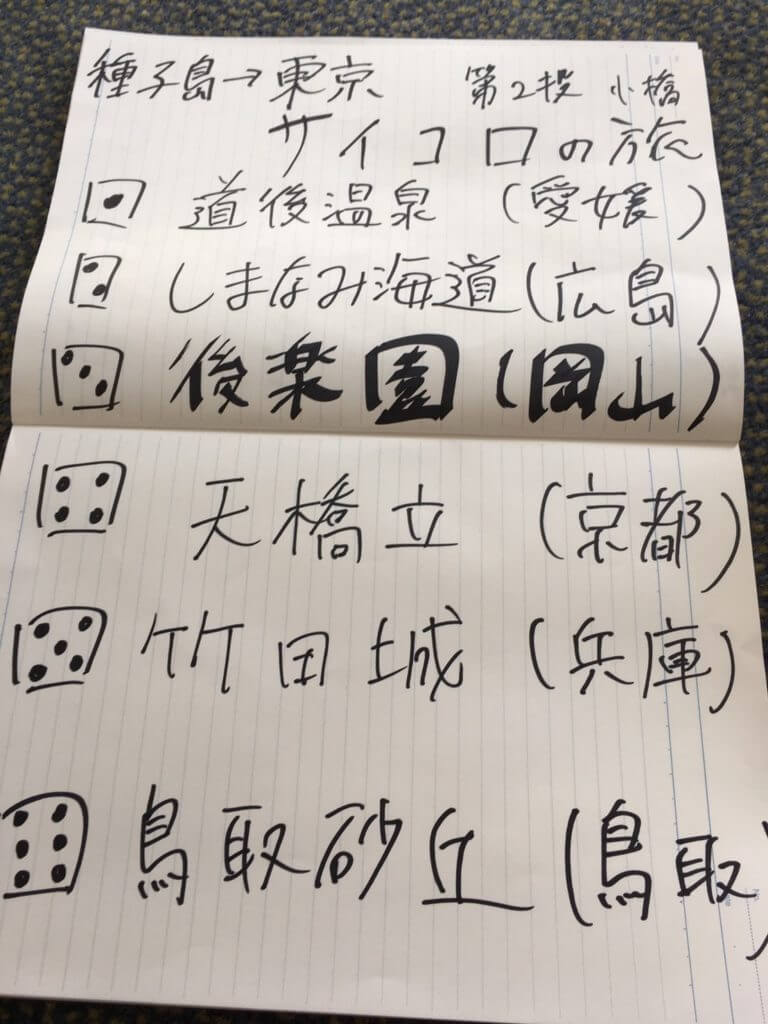 種子島→東京 第2投 小橋
サイコロの旅
道後温泉 (愛媛)
しまなみ海道(広島)
後楽園(岡山)
天橋立 (京都)
竹田城 (兵庫)
鳥取砂丘 (鳥取)